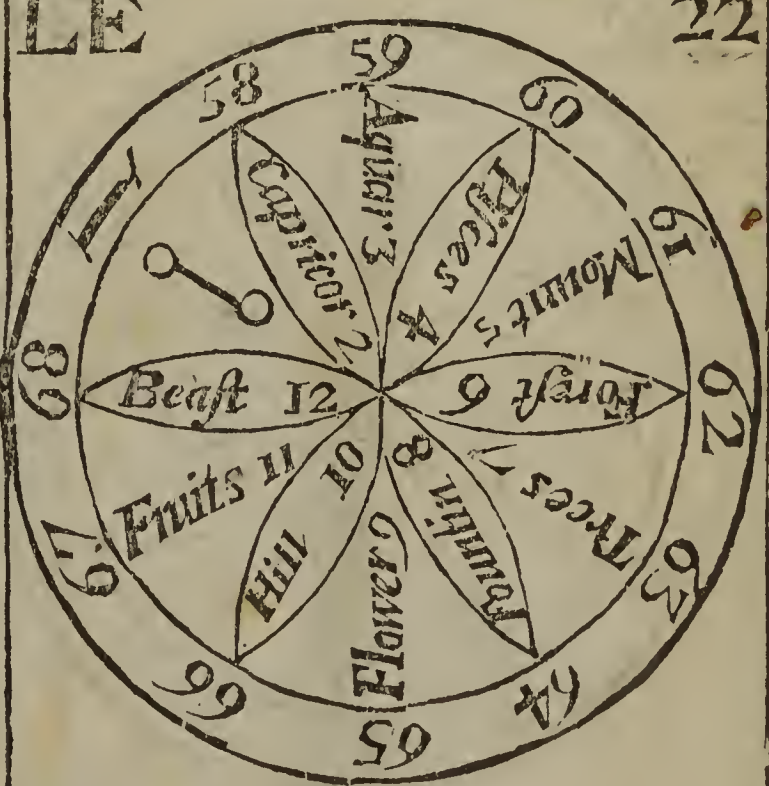 LE 22
I
58
59
60
61
62
63
64
65
66
67
68
Capricor 2
Aquar 3
Piſces 4
Mount 5
Foreſt 6
Trees 7
Fountin 8
Flower 9
Hill 10
Fruits 11
Beaſt 12